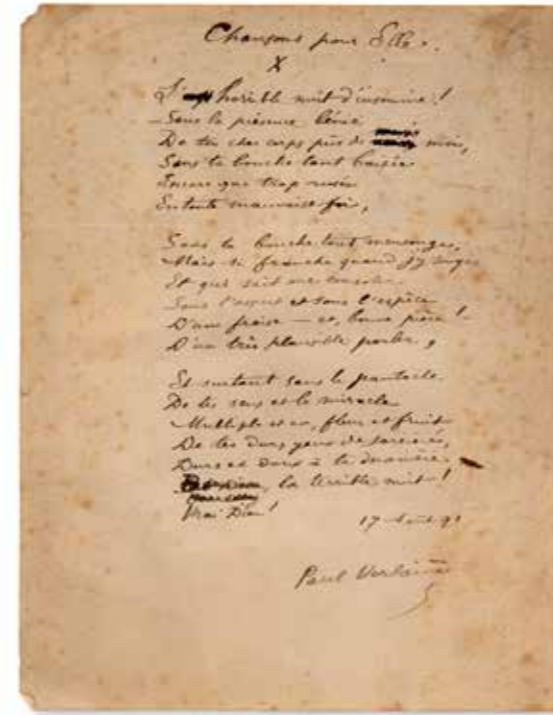 Chansons pour Elle.
X
L'horrible nuit d'insomnie!
– Sans la présence bénie
De ton cher corps près de moi,
Sans ta bouche tant baisée
Encore que trop rusée
En toute mauvaise foi,
Sans ta bouche tout mensonge,
Mais si franche quand j'y songe
Et qui sait me consoler
Sous l'aspect et sous l'espèce
D'une fraise – et, bonne pièce! –
D'un très plausible parler,
Et surtout sans le pentacle
De tes sens et le miracle
Multiple et un, fleur et fruit,
De tes durs yeux de sorcière,
Durs et doux à ta manière
la terrible nuit!
Vrai Dieu!
17 Août 91
Paul Verlaine